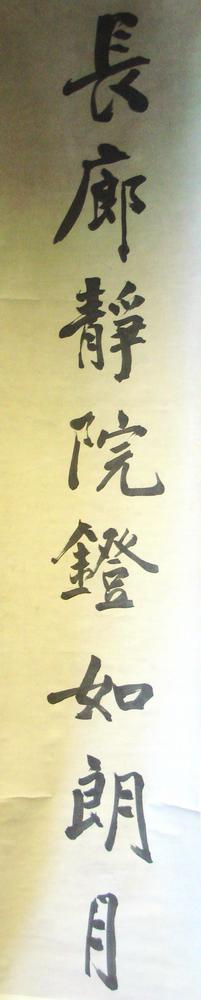 長廊靜院鐙如朗月